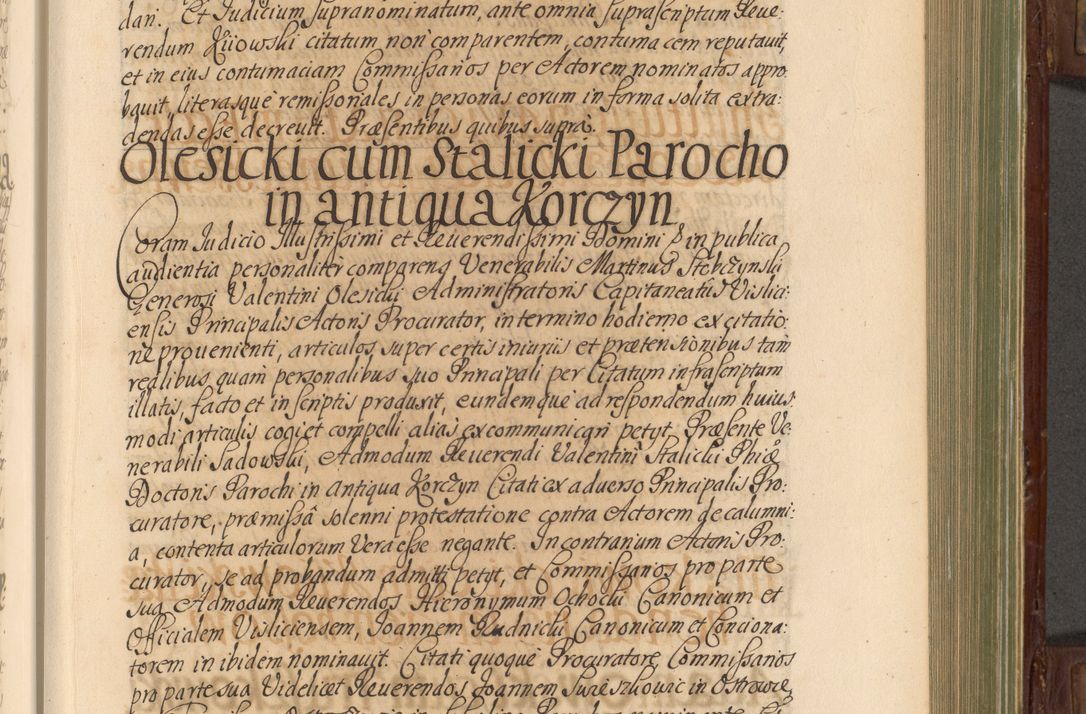 dari. Et Judicium supranominatum, ante omnia suprascriptum Reue-
rendum Kijowski citatum non comparentem, contumacem reputauit,
et in eius contumaciam Commissarios per Actorem nominatos appro-
bauit, literasque remissoriales in personas eorum in forma solita extra-
dendas esse decreuit. Præsentibus quibus supra.
Olesicki cum Stalicki Parocho
in antiqua Korczyn
Coram Judicio Illustrissimi et Reuerendissimi Domini p in publica
audientia personaliter comparens Venerabilis Martinus Stebczynski
Generosi Valentini Olesicki Administratoris Capitaneatus Vislici-
ensis Principalis Actoris Procurator, in termino hodierno ex citatio-
ne prouenienti, articulos super certis iniurijs et prætensionibus tam
realibus quam personalibus suo Principali per Citatum infrascriptum
illatis, facto et in scriptis produxit, eundemque ad respondendum huius-
modi articulis cogi et compelli alias excommunicari petyt. Præsente Ve-
nerabili Sadowski, Admodum Reuerendi Valentini Stalicki Phiæ
Doctoris Parochi in Antiqua Korczyn Citati ex aduerso Principalis Pro-
curatore, præmissâ solenni protestatione contra Actorem de calumni-
a, contenta articulorum Vera esse negante. In contrarium Actoris Pro-
curator, se ad probandum admitti petyt, et Commissarios pro parte
sua Admodum Reuerendos Hieronymum Ochocki Canonicum et
Officialem Visliciensem, Joannem Rudnicki Canonicum et Conciona-
torem in ibidem nominauit. Citati quoque Procuratore Commissarios
pro parte sua Videlicet Reuerendos Joannem Sureszkowic in Ostrowce,